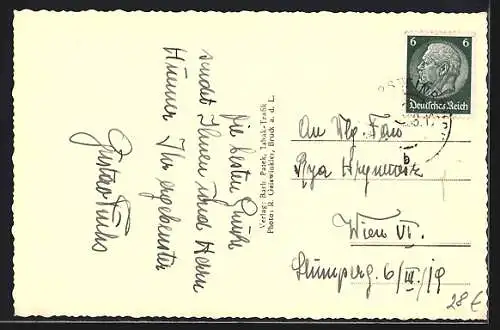 Die besten Grüße
sendet Ihnen und Herrn
Ihr ergebenster
Gustav Fuchs
Verlag: Barb. Pasek, Tabak-Trafik
Photo: R. Liebwinkler, Bruck a. d. L.
6 6
Deutsches Reich
b
An Wlg. Frau
Wien VI.
Stumperg. 6/III./19
28 €